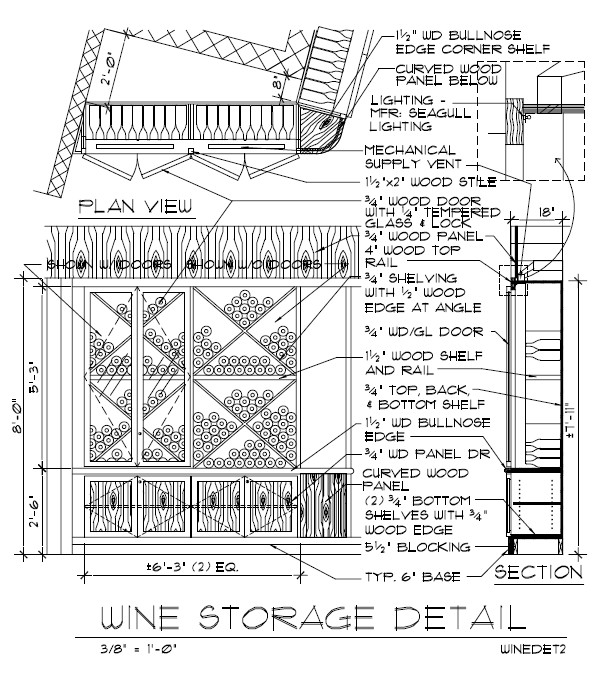 1½" WD BULLNOSE
EDGE CORNER SHELF
CURVED WOOD
PANEL BELOW
LIGHTING -
MFR: SEAGULL
LIGHTING
MECHANICAL
SUPPLY VENT
1½"x2" WOOD STILE
2'-0"
8"
PLAN VIEW
¾" WOOD DOOR
WITH ¼" TEMPERED
GLASS & LOCK
¾" WOOD PANEL
4" WOOD TOP
RAIL
18"
SHOWN W/DOORS SHOWN W/O DOORS
¾" SHELVING
WITH ½" WOOD
EDGE AT ANGLE
¾" WD/GL DOOR
1½" WOOD SHELF
AND RAIL
¾" TOP, BACK,
& BOTTOM SHELF
1½" WD BULLNOSE
EDGE
¾" WD PANEL DR
CURVED WOOD
PANEL
(2) ¾" BOTTOM
SHELVES WITH ¾"
WOOD EDGE
5½" BLOCKING
TYP. 6" BASE
8'-0"
5'-3"
2'-6"
±7'-11"
±6'-3" (2) EQ.
SECTION
WINE STORAGE DETAIL
3/8" = 1'-0"
WINEDET2